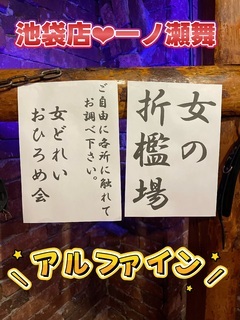 池袋店❤一ノ瀬舞
女の
折檻場
ご自由に各所に触れて
お調べ下さい。
女どれい
おひろめ会
アルファイン